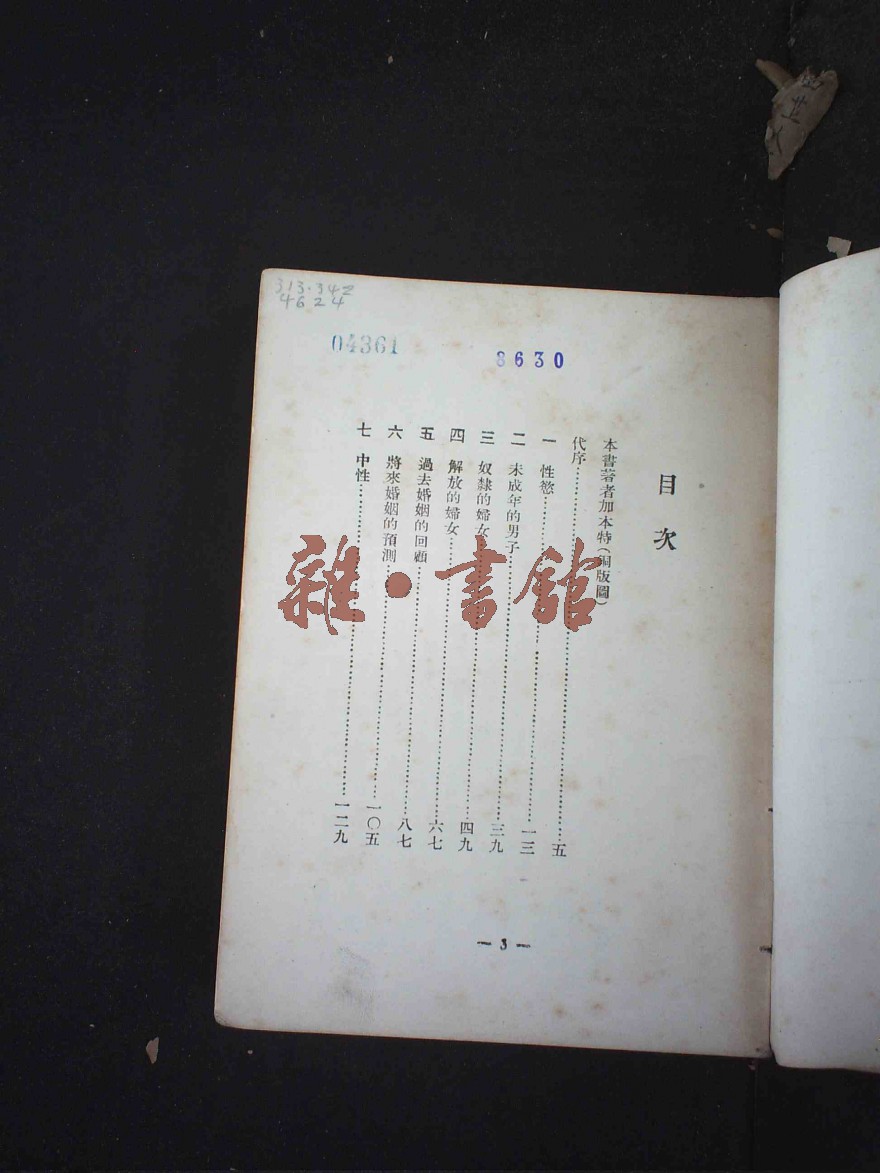 313.342
4624
04361
8630
目次
本書著者加本特(銅版圖)
代序……五
一 性慾……一三
二 未成年的男子……三九
三 奴隸的婦女……四九
四 解放的婦女……六七
五 過去婚姻的回顧……八七
六 將來婚姻的預測……一〇五
七 中性……一二九
— 3 —
雜·書館